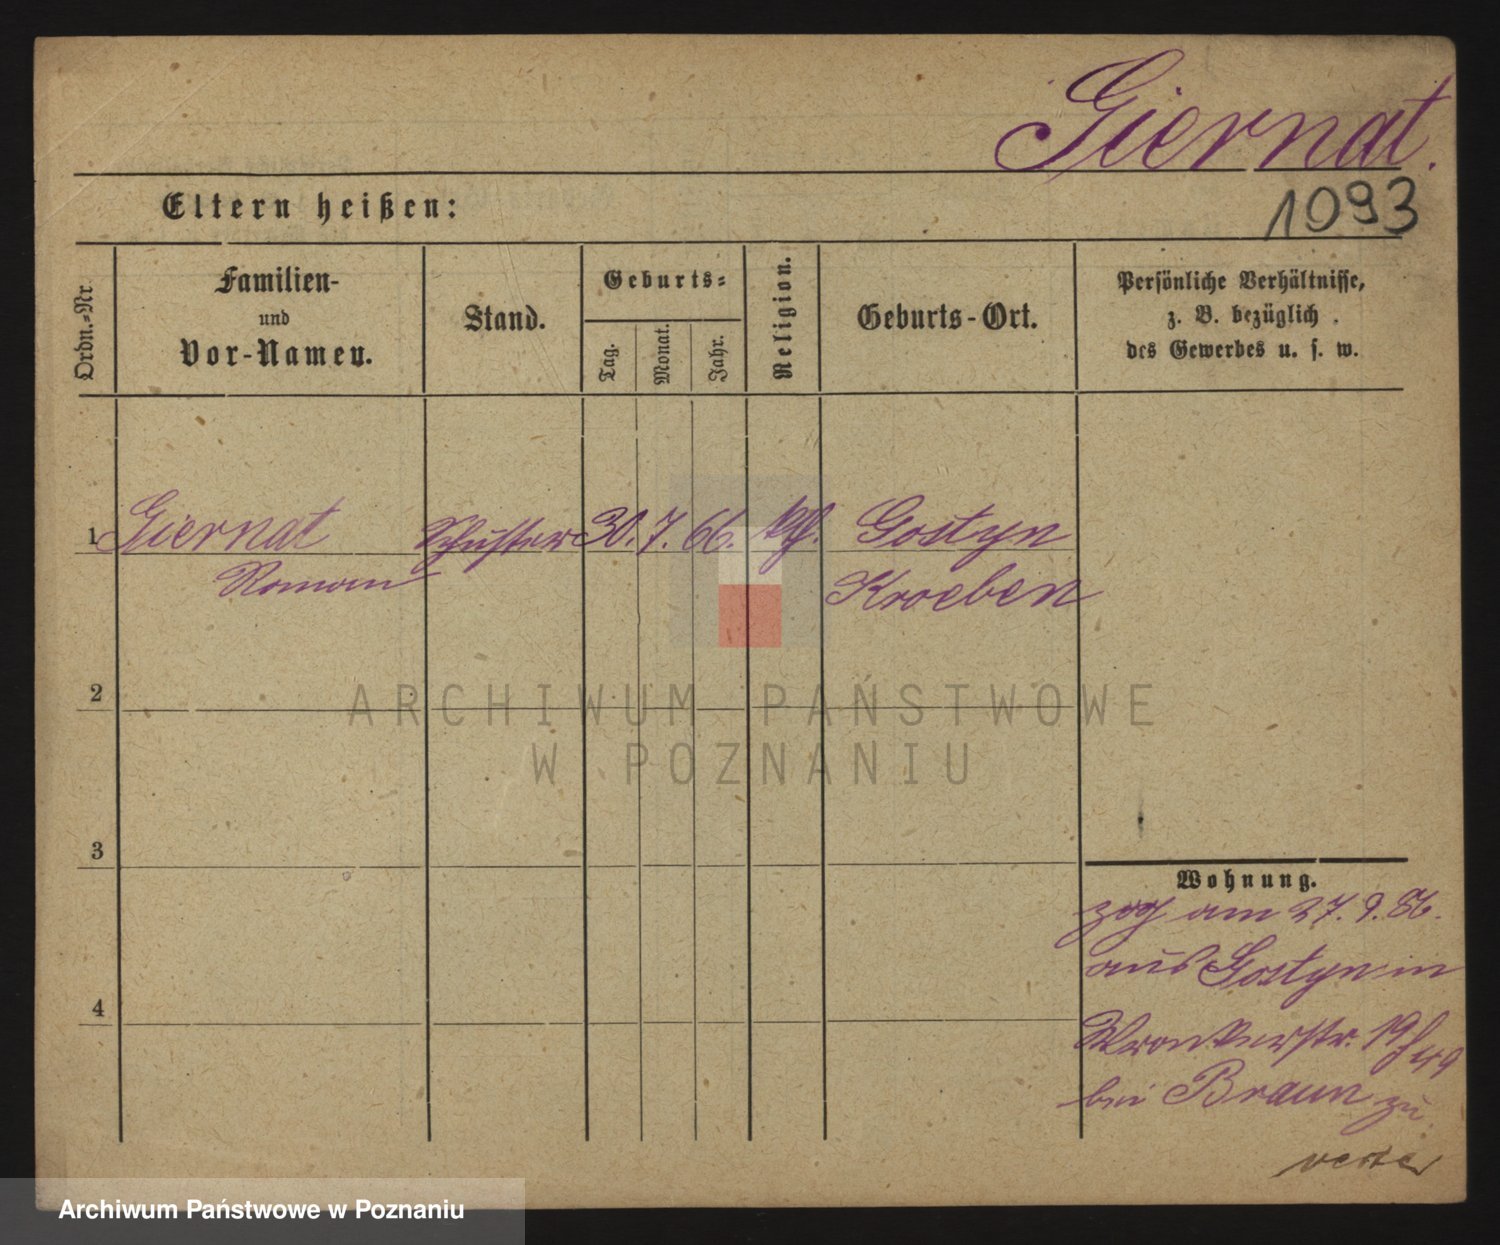 Giernat.
1093
Eltern heißen:
Ordn.-Nr.
Familien-
und
Vor-Namen.
Stand.
Geburts-
Tag.
Monat.
Jahr.
Religion.
Geburts-Ort.
Persönliche Verhältnisse,
z. B. bezüglich
des Gewerbes u. s. w.
1 Giernat Schuster 30. 7. 66. kth. Gostyn
Roman Kroeben
2
3
4
Wohnung.
zog am 27. 9. 86.
aus Gostyn in
Wronkerstr. 19
bei Braun zu
verte
ARCHIWUM PAŃSTWOWE
W POZNANIU
Archiwum Państwowe w Poznaniu